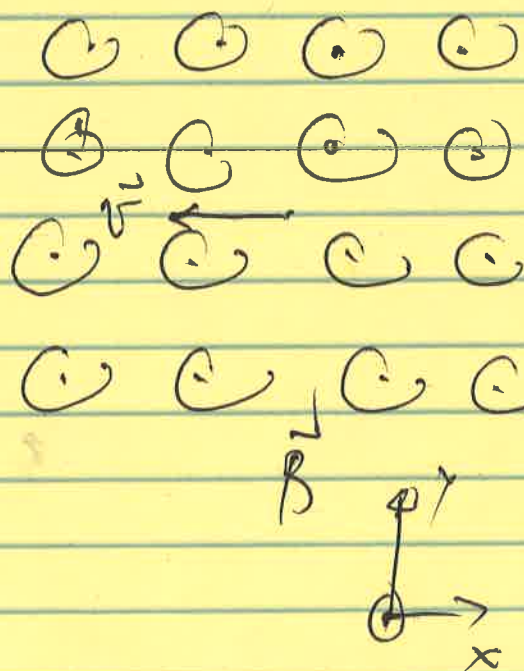 v
B
y
x